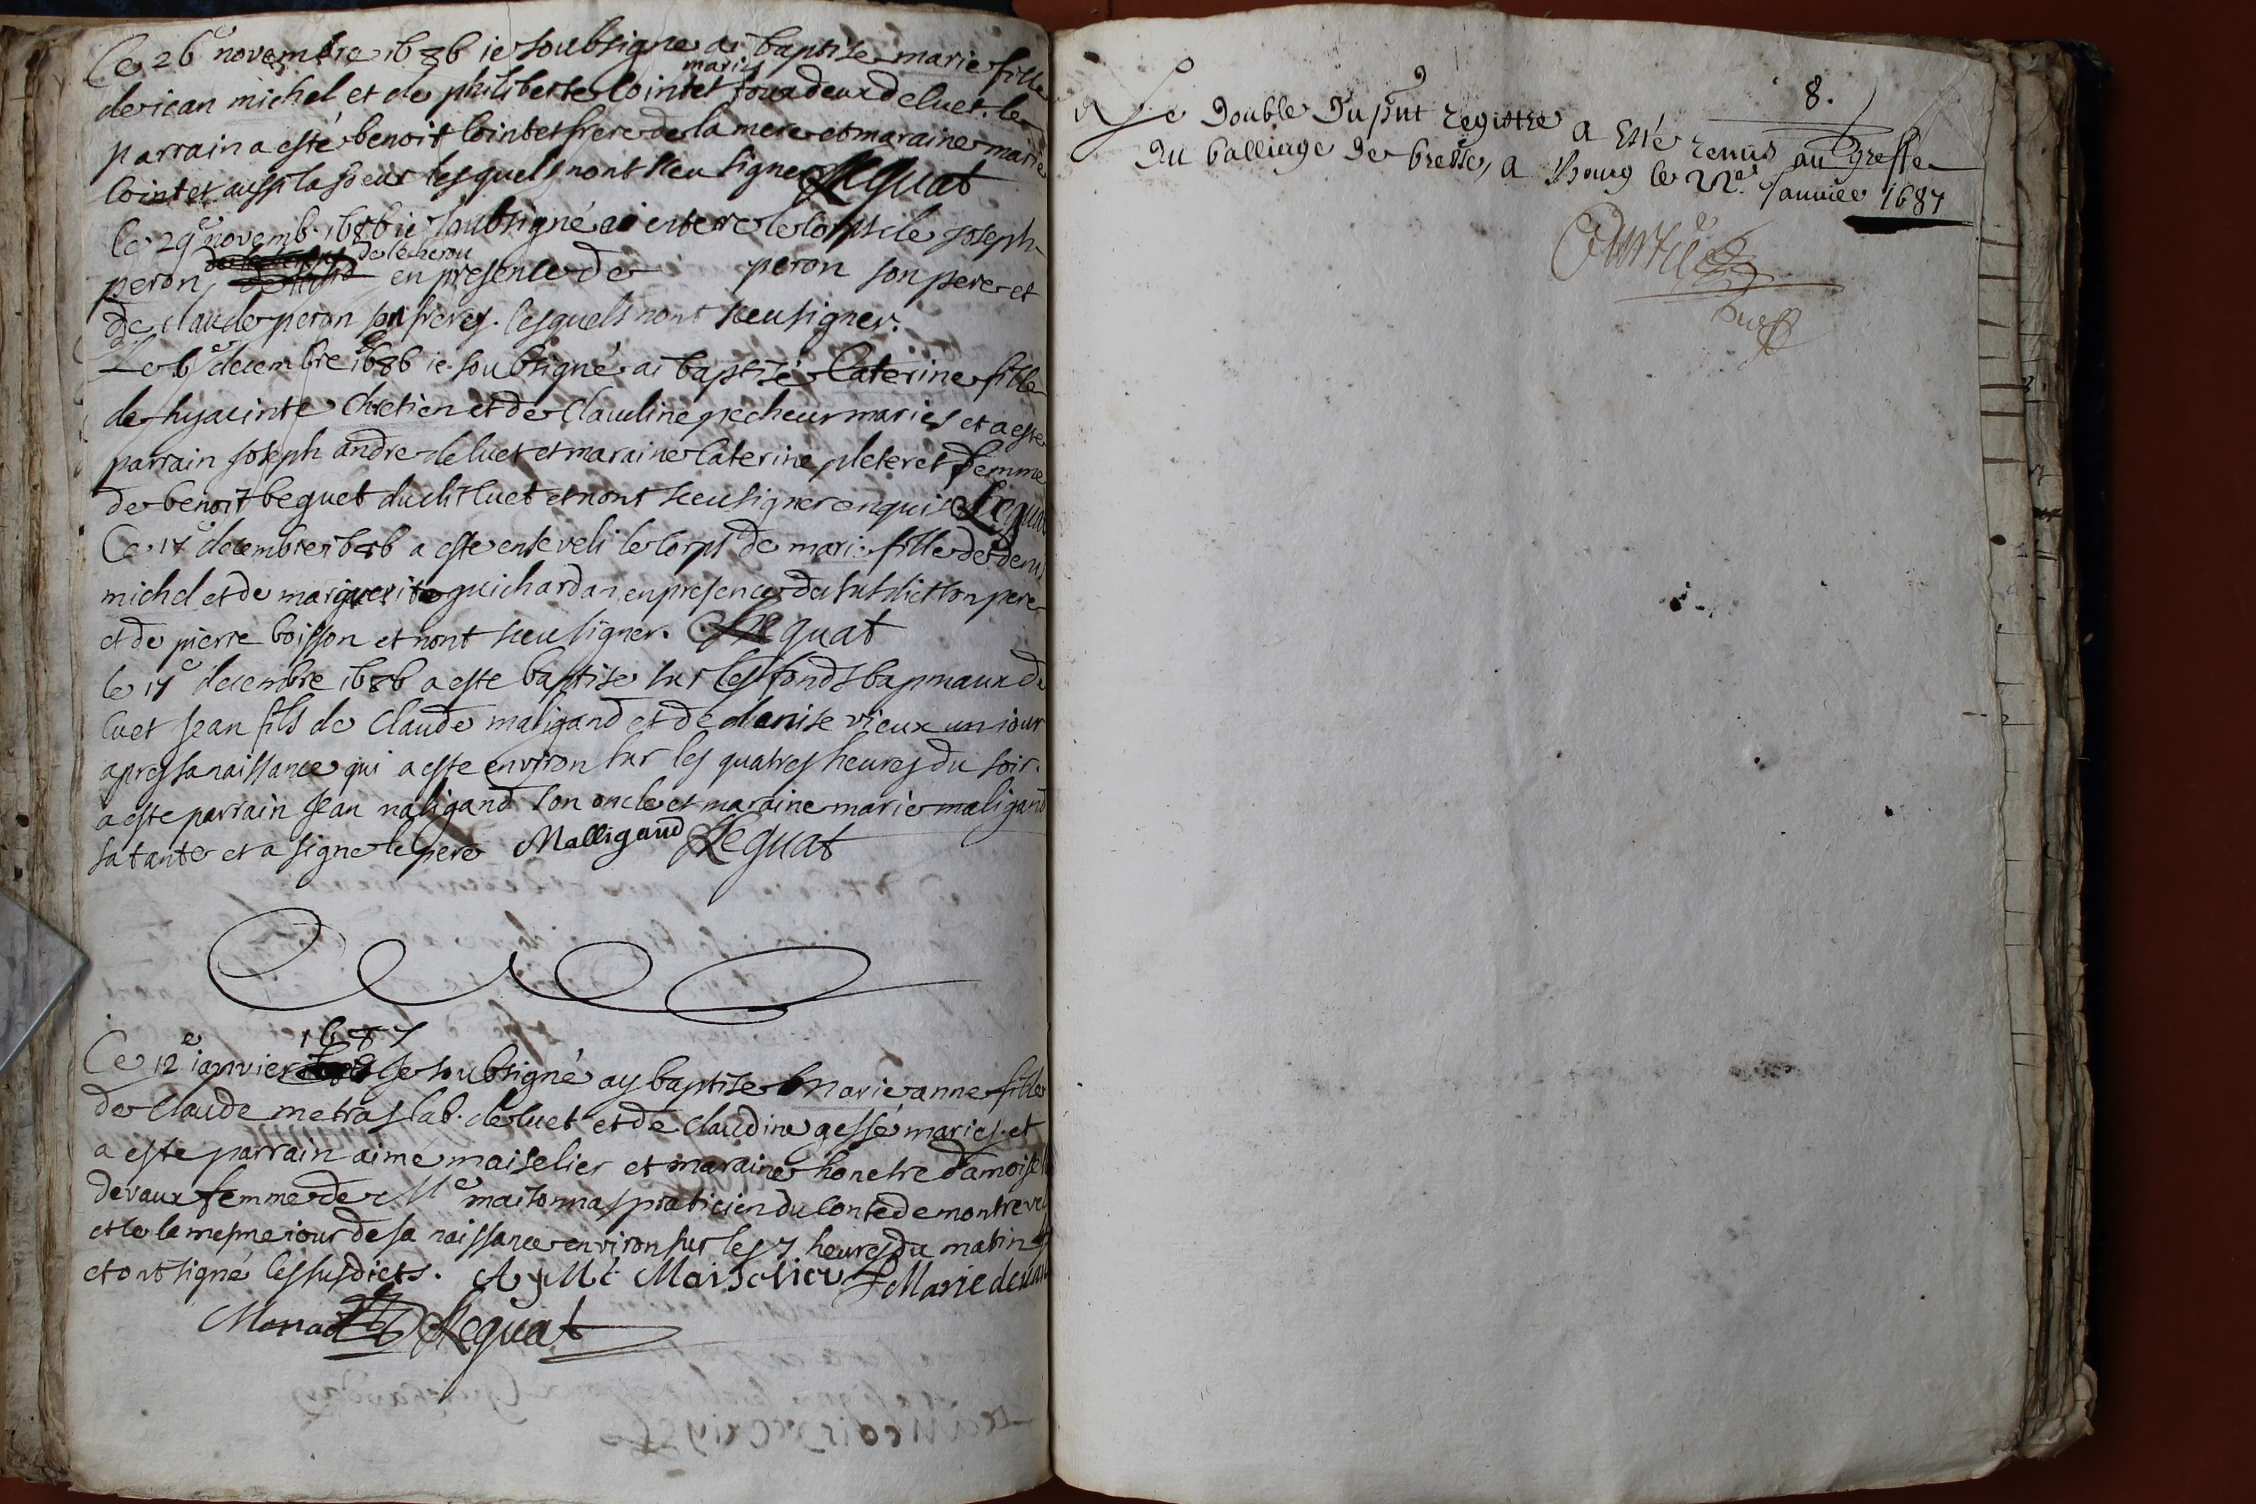 Ce 26e novembre 1686 ie soubsigne ai baptise marie fille
de iean michel et de philiberte Cointet maries tous deux de Cuet. le
parrain a esté benoit Cointet frere de la mere et maraine marie
Cointet aussi la soeur lesquels nont sceu signer Lequat
le 29e novemb. 1686 ie soubsigné ai enterre le corps de Joseph
peron de lecherou en presence de peron son pere et
de claude peron son freres. lesquels nont sceu signer.
Le 6e decembre 1686 ie soubsigné ai baptisé Caterine fille
de hyacinte Chretien et de Clauline pecheur maries et a este
parrain Joseph andre de Cuet et maraine Caterine pleteret femme
de benoit beguet dudit Cuet et nont sceu signer enquis Lequat
Ce 17e decembre 1686 a este enseveli le corps de marie fille de denis
michel et de marguerite guichardan en presence du susdict son pere
et de pierre boisson et nont sceu signer. Lequat
le 17e decembre 1686 a este baptise sur les fonds bapmaux de
Cuet Jean fils de Claude maligand et de denise vieux un iour
apres sa naissance qui a este environ sur les quatres heures du soir.
a este parrain Jean maligand son oncle et maraine marie maligand
sa tante et a signe le pere Malligand Lequat
1687
Ce 12e ianvier Je soubsigné ay baptise Marie anne fille
de Claude metras lab. de Cuet et de Claudine gessé maries. et
a este parrain aime maiselier et maraine honeste damoiselle
devaux femme de Me maisonnas praticien du Conté de montrevel
et le mesme iour de sa naissance environ sur les 7 heures du matin
et ont signé les susdicts. AyMé Maiselier Marie devaux
Lequat
8.
Le Double Du pnt registre a Esté remis au Greffe
Du balliage De bresse, a bourg le Janvier 1687